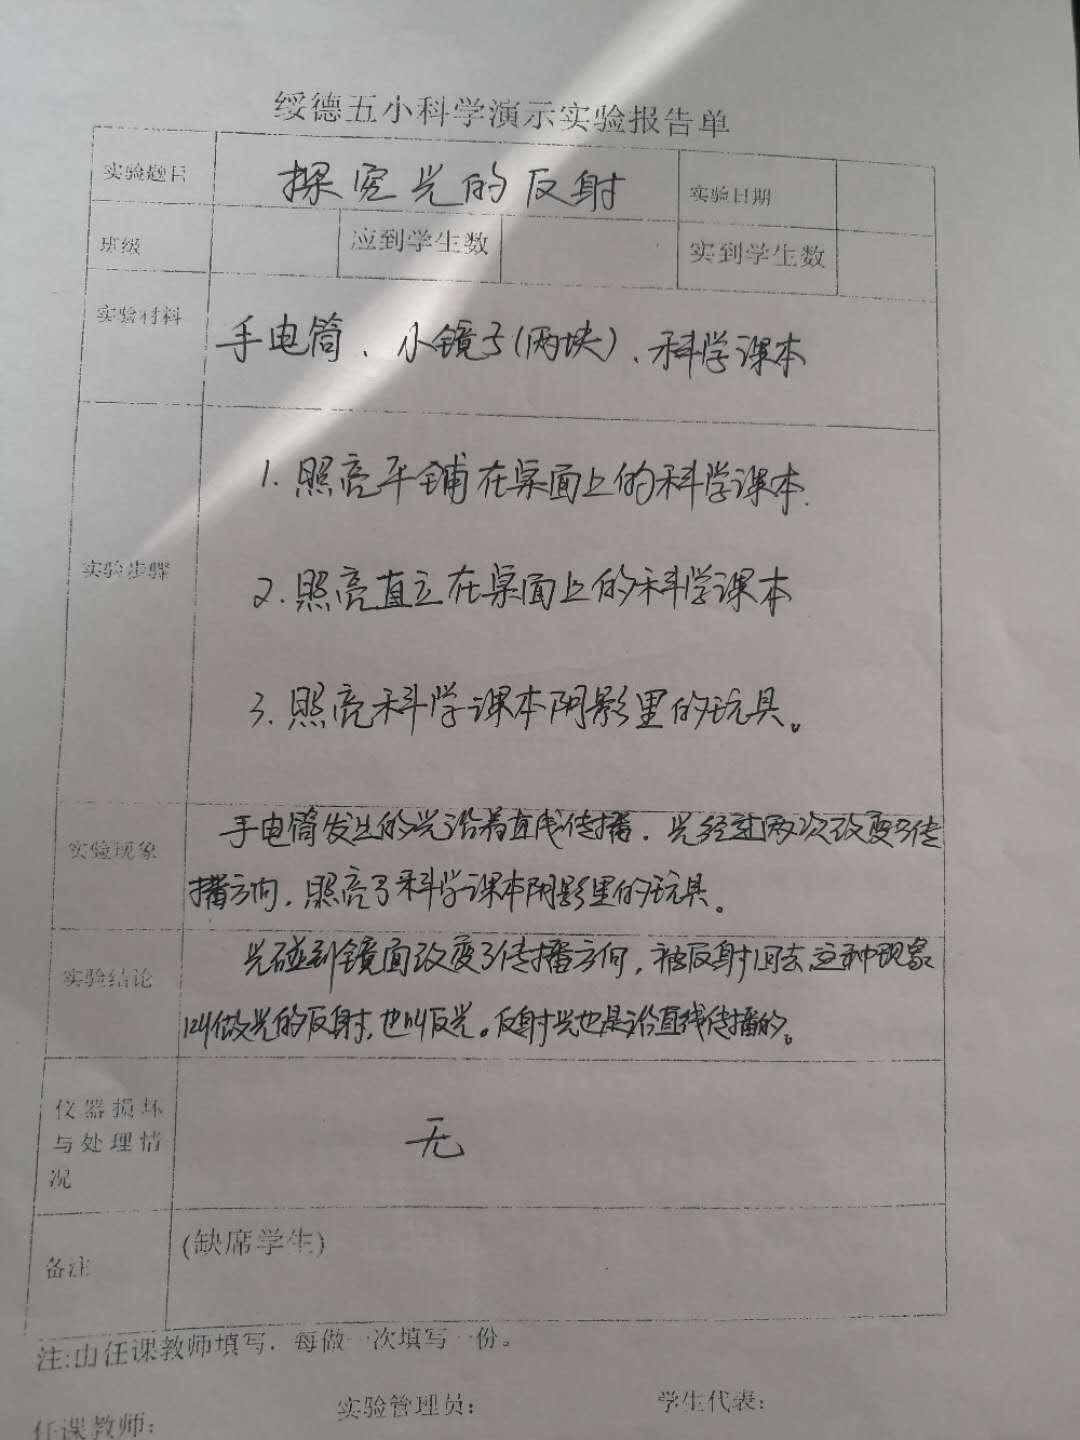 绥德五小科学演示实验报告单
实验题目 探究光的反射 实验日期
班级 应到学生数 实到学生数
实验材料 手电筒、小镜子(两块)、科学课本
1.照亮平铺在桌面上的科学课本.
实验步骤
2.照亮直立在桌面上的科学课本
3.照亮科学课本阴影里的玩具。
手电筒发出的光沿着直线传播.光经过两次改变了传
实验现象
播方向,照亮了科学课本阴影里的玩具。
光碰到镜面改变了传播方向,被反射回去,这种现象
实验结论
叫做光的反射,也叫反光。反射光也是沿直线传播的。
仪器损坏
与处理情
况
无
(缺席学生)
备注
注:由任课教师填写.每做一次填写一份。
任课教师: 实验管理员: 学生代表: